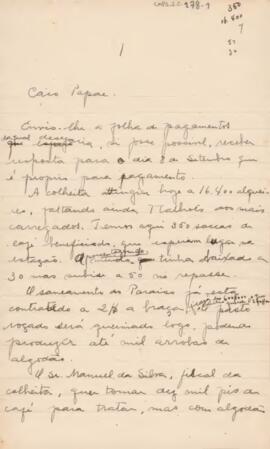 278-1
350
16.400
7
1
Caro Papae.
Envio-lhe a folha de pagamentos
e qual desejaria, si fosse possivel, receber
resposta para o dia 8 a Setembro que
é proprio para pagamento.
A colheita attingiu hoje a 16.400 alquei-
res, faltando ainda 7 talhões dos mais
carregados. Temos aqui 350 saccas de
café beneficiado, que esperam lugar na
estação. tinha baixado a
30 mas subiu a 50 no repasse.
O saneamento do Paraiso já está
contratado a 2$ a braça, e o pasto
roçado será queimado logo, podendo
produzir até mil arrobas de
algodão.
O Sr. Manuel da Silva, fiscal da
colheita, quer tomar dez mil pés de
café para tratar, mas com algodão